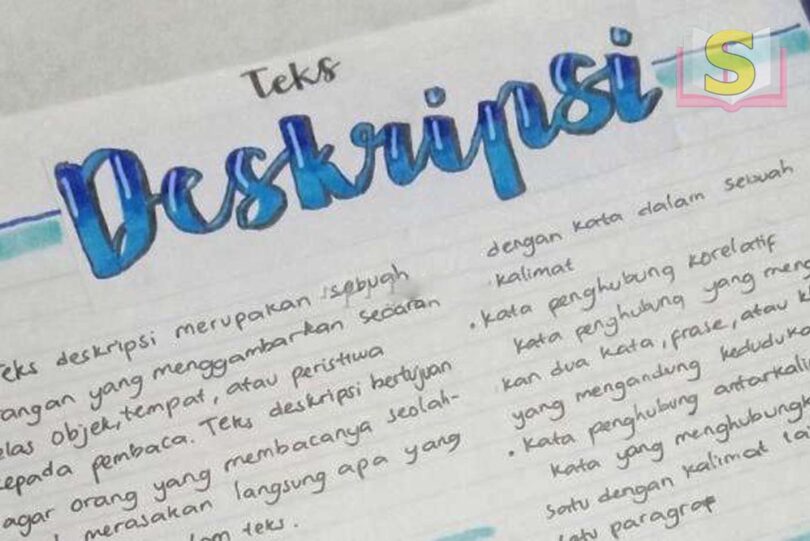 Teks
Deskripsi
Teks deskripsi merupakan sebuah
angan yang menggambarkan secaran
elas objek, tempat, atau peristiwa
kepada pembaca. Teks deskripsi bertujuan
agar orang yang membacanya seolah-
merasakan langsung apa yang
teks.
dengan kata dalam sebuah
kalimat
• kata penghubung korelatif
kata penghubung yang meng
kan dua kata, frase, atau kl
yang mengandung keduduka
• kata penghubung antarkali
kata yang menghubungk
satu dengan kalimat lai
satu paragraf
S